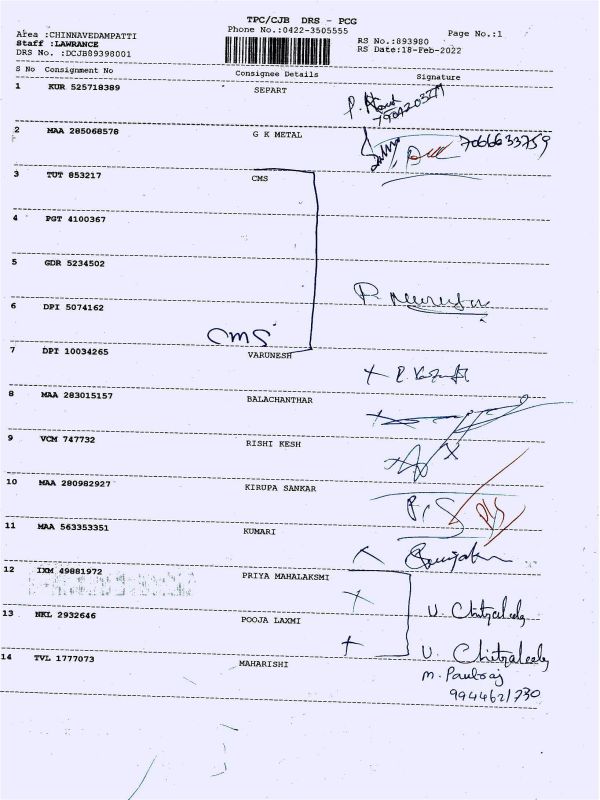 TPC/CJB DRS - PCG
Area :CHINNAVEDAMPATTI
Phone No.:0422-3505555
Page No.:1
Staff :LAWRANCE
RS No.:893980
DRS No. :DCJB89398001
RS Date:18-Feb-2022
S No Consignment No Consignee Details Signature
1 KUR 525718389 SEPART
2 MAA 285068578 G K METAL 7066633759
3 TUT 853217 CMS
4 PGT 4100367
5 GDR 5234502
6 DPI 5074162
CMS
7 DPI 10034265 VARUNESH
8 MAA 283015157 BALACHANTHAR
9 VCM 747732 RISHI KESH
10 MAA 280982927 KIRUPA SANKAR
11 MAA 563353351 KUMARI
12 IXM 49881972 PRIYA MAHALAKSMI
13 NKL 2932646 POOJA LAXMI
14 TVL 1777073 MAHARISHI
M. Paulraj
9944621730